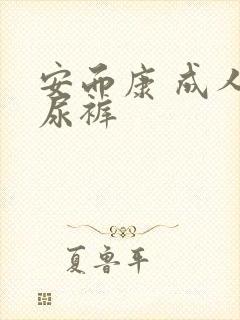 安而康 成人
尿裤
夏鲁平